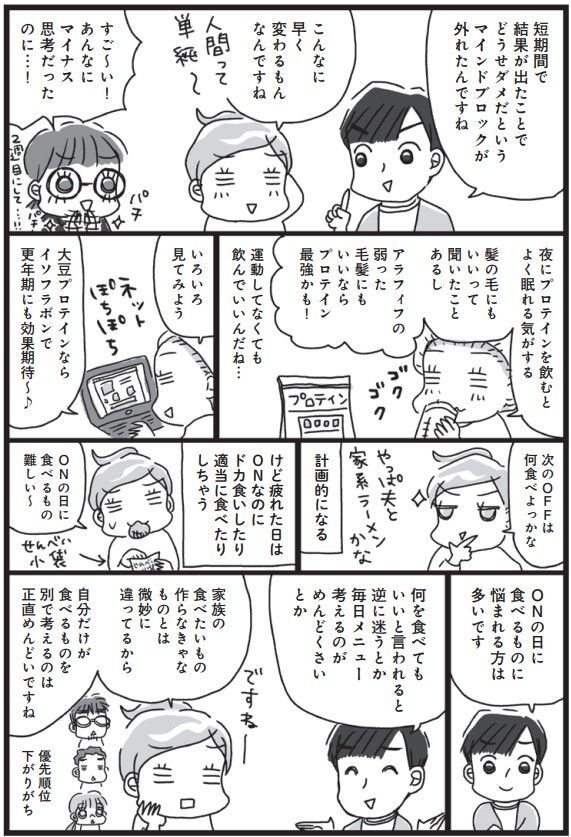 短期間で
結果が出たことで
どうせダメだという
マインドブロックが
外れたんですね
こんなに
早く
変わるもん
なんですね
人間って
単純〜
すご〜い！
あんなに
マイナス
思考だった
のに…！
2週目にして…!!
パチ
パチ
夜にプロテインを飲むと
よく眠れる気がする
髪の毛にも
いいって
聞いたこと
あるし
アラフィフの
弱った
毛髪にも
いいなら
プロテイン
最強かも！
運動してなくても
飲んでいいんだね…
プロテイン
ゴク
ゴク
いろいろ
見てみよう
ネット
ぽちぽち
大豆プロテインなら
イソフラボンで
更年期にも効果期待〜♪
次のOFFは
何食べよっかな
やっぱ夫と
家系ラーメン
かな
計画的になる
けど疲れた日は
ONなのに
ドカ食いしたり
適当に食べたり
しちゃう
ONの日に
食べるもの
難しい〜
せんべい
小袋
ONの日に
食べるものに
悩まれる方は
多いです
何を食べても
いいと言われると
逆に迷うとか
毎日メニュー
考えるのが
めんどくさい
とか
ですね〜
家族の
食べたいもの
作らなきゃな
ものとは
微妙に
違ってるから
自分だけが
食べるものを
別で考えるのは
正直めんどいですね
優先順位
下がりがち